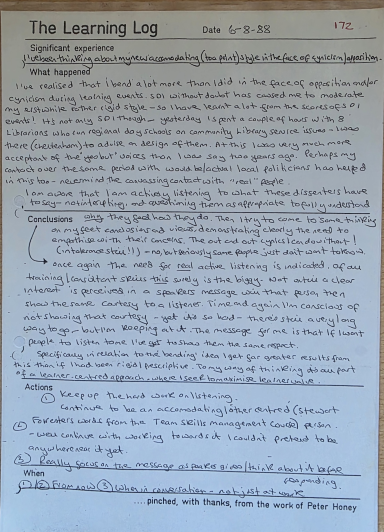 The Learning Log Date 6-8-88 172
Significant experience
I've been thinking about my new accomodating (too print) style in the face of cynicism/opposition.
What happened
I've realised that I bend a lot more than I did in the face of opposition and/or
cynicism during learning events. SDI without doubt has caused me to moderate
my erstwhile rather rigid style - so I have learnt a lot from the scores of SDI
events! It's not only SDI though - yesterday I spent a couple of hours with 8
Librarians who run regional day schools on community library service issues - I was
there (Cheltenham) to advise on design of them. At this I was very much more
acceptant of the 'yeabut' voices than I was say two years ago. Perhaps my
outlook over the same period with would be/actual local politicians has helped
in this too - never mind the canvassing contact with "real" people.
I am aware that I am actively listening to what these dissenters have
to say - not interrupting, and questioning them as appropriate to fully understand
Conclusions why they feel how they do. Then I try to come to some thinking
on my feet conclusions and views, demonstrating clearly the need to
empathise with their concerns. The out and out cynics I can do without!
(intolerance still!!) - no, but seriously some people just don't want to know.
once again the need for real active listening is indicated. Of all
training/consultant skills this surely is the biggy. Not only a clear
interest is perceived in a speakers message when that person then
show the same courtesy to a listener. Time and again I'm conscious of
not showing that courtesy - yet I'd so hard - there's still a very long
way to go - but I'm keeping at it. The message for me is that if I want
people to listen to me I've got to show them the same respect.
Specifically in relation to the bending idea I get far greater results from
this than if I had been rigid/prescriptive. To my way of thinking it's all part
of a learner-centred approach - where I seek to maximise learner value.
Actions
① Keep up the hard work on listening.
Continue to be an accomodating/other centred (Stewart
Forenters words from the Team skills management course) person.
- well continue with working towards it I couldn't pretend to be
anywhere near it yet.
③ Really focus on the message a speaker gives/think about it before
responding.
When
① ② From now ③ When in conversation - not just at work
....pinched, with thanks, from the work of Peter Honey